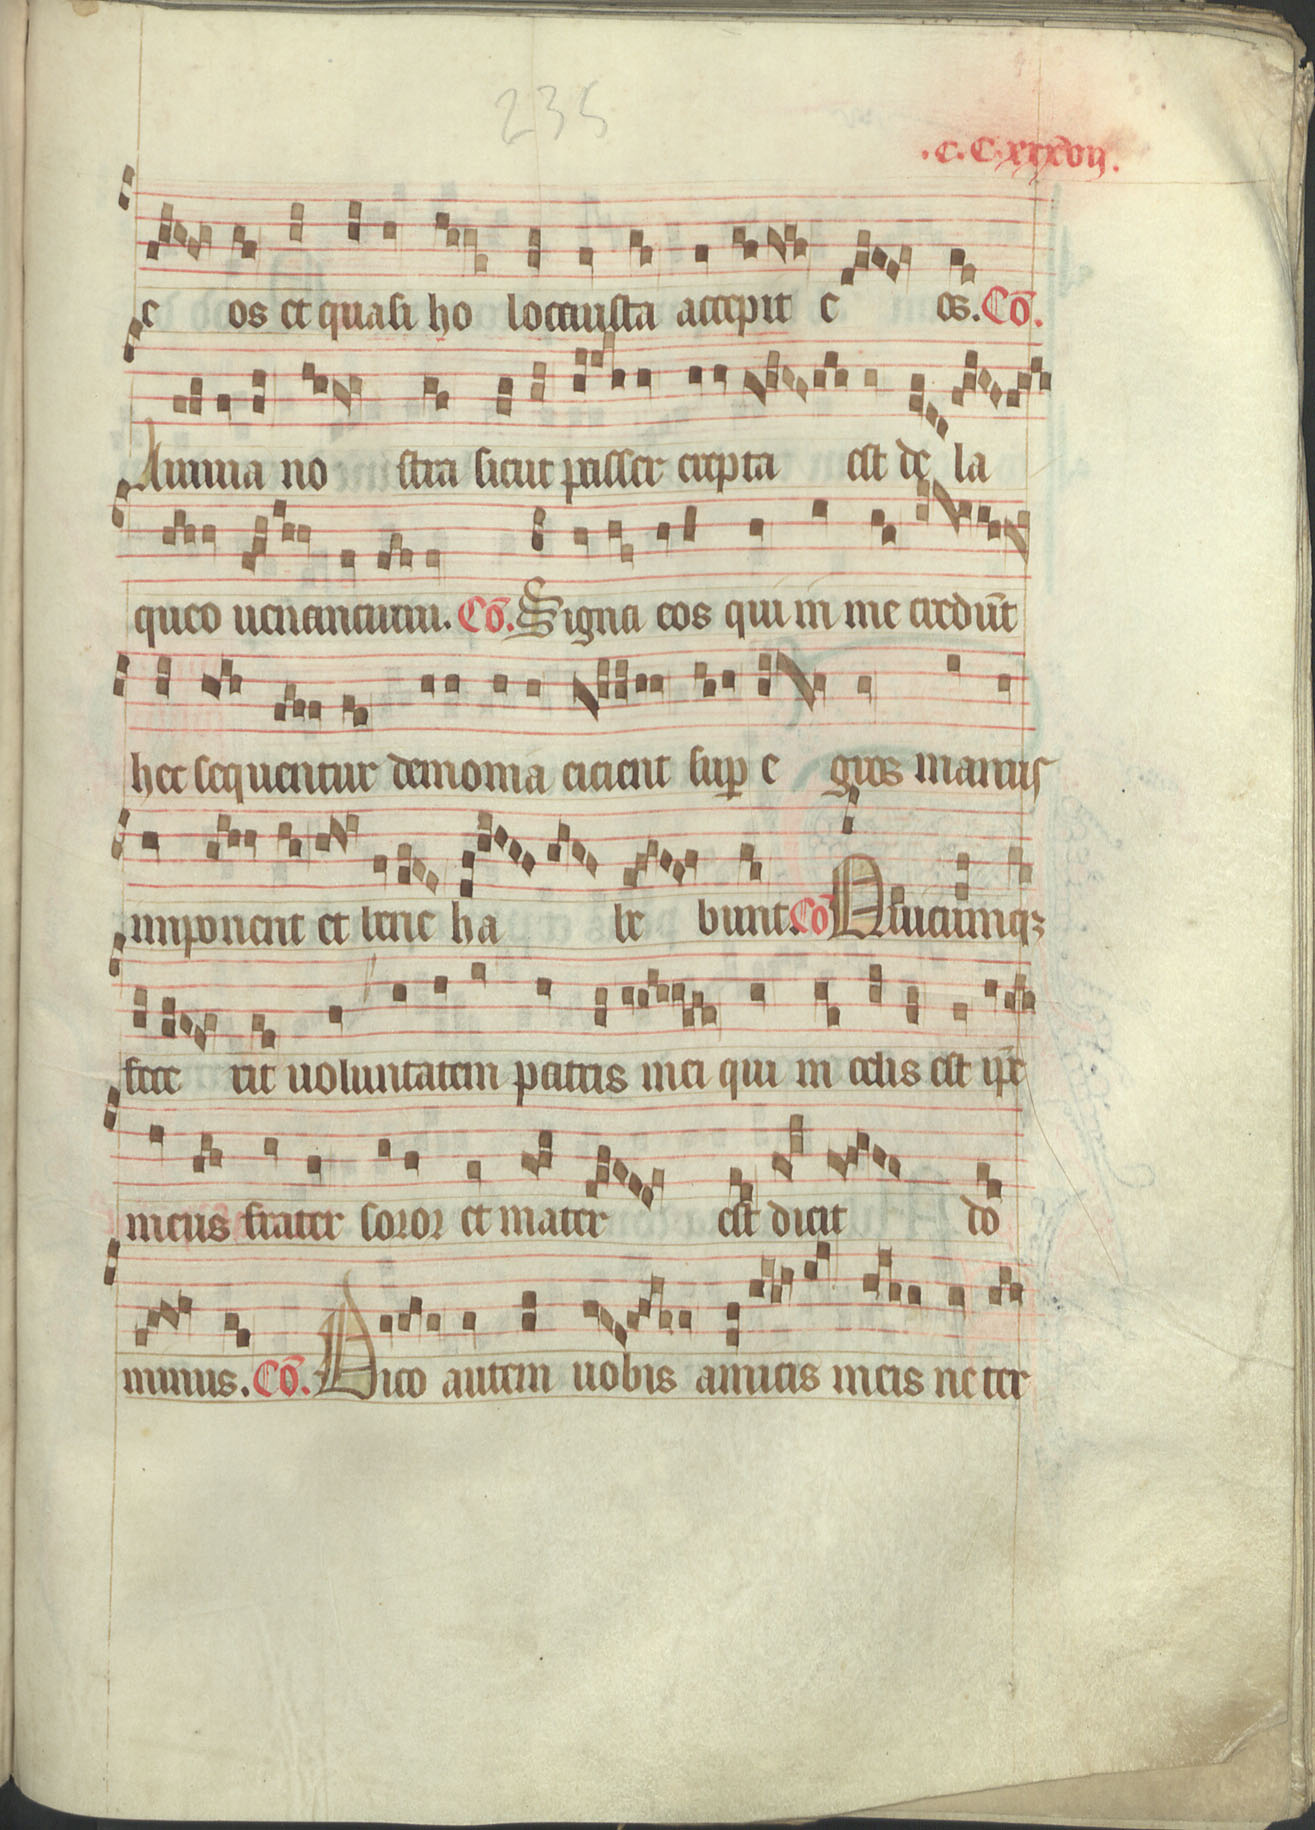 235
.c.C.xxxvij.
e os et quasi ho locausta accepit e os. Cō.
Anima no stra sicut passer erepta est de la
queo uenantium. Cō. Signa eos qui in me credūt
hec sequentur demonia eicient sup e gros manus
imponent et bene ha be bunt. Cō Quicumqꝫ
fece rit uoluntatem patris mei qui in celis est ip̄e
meus frater soror et mater est dicit do
minus. Cō. Dico autem uobis amicis meis ne ter